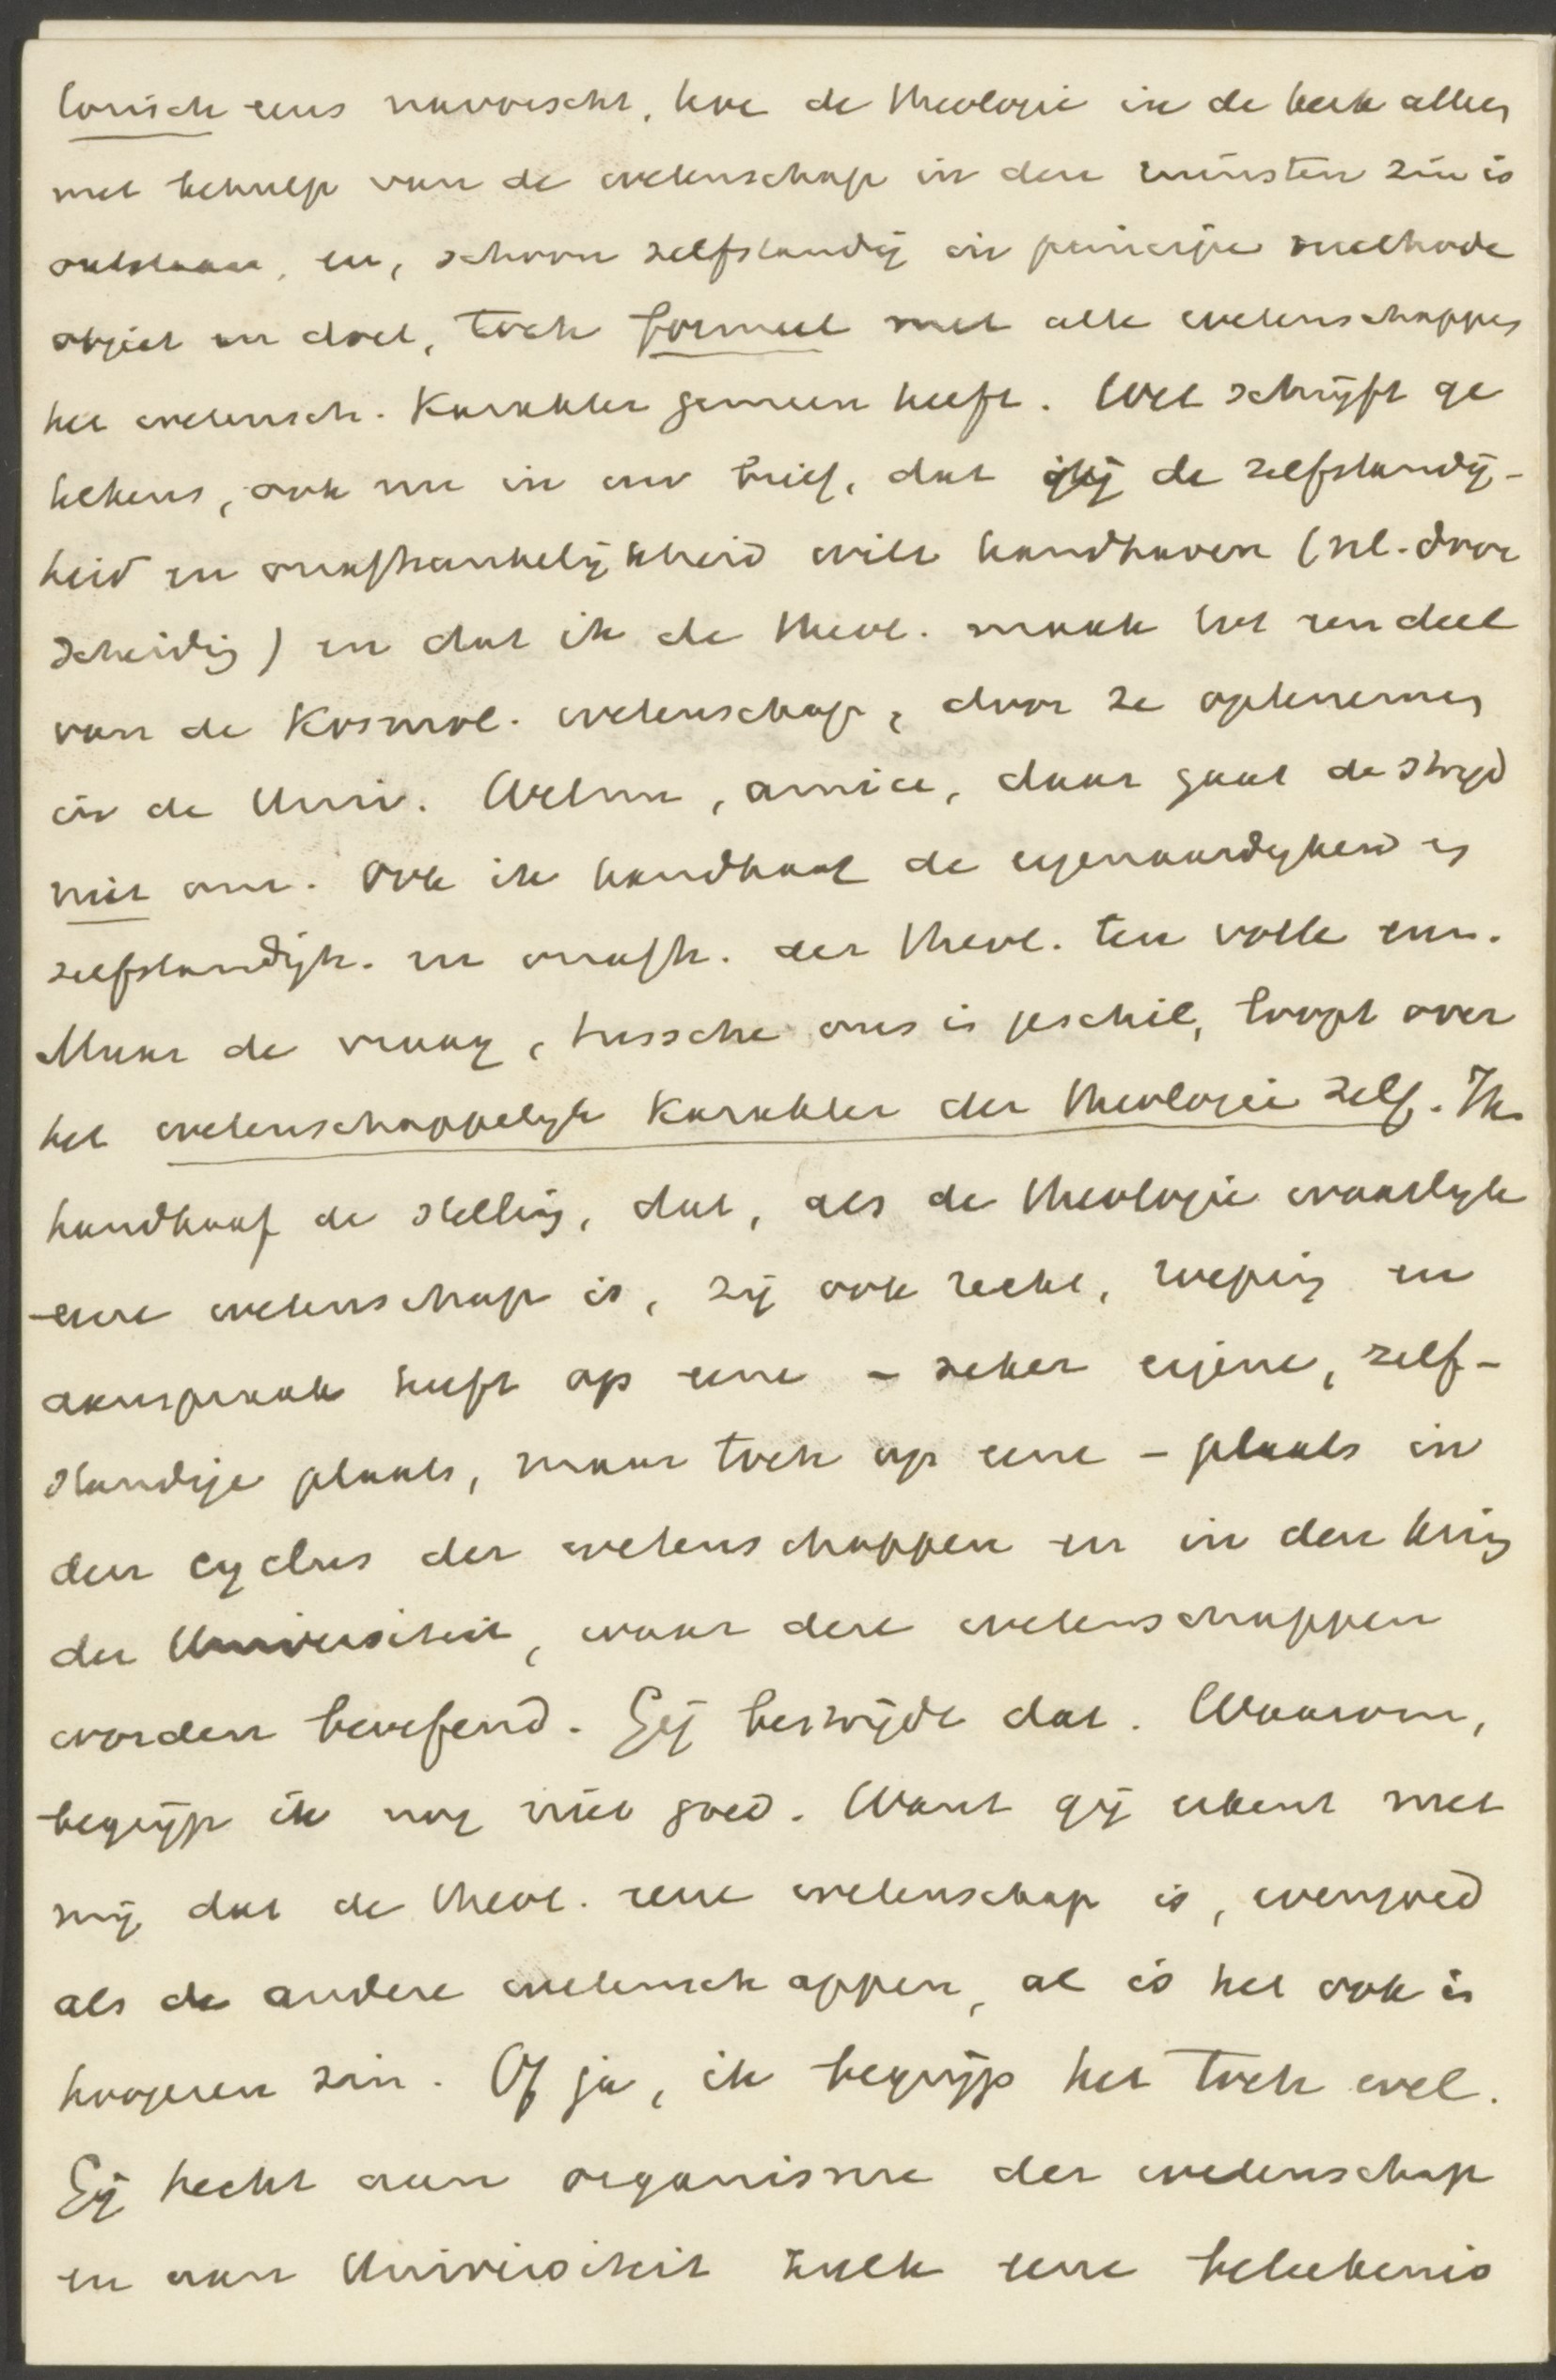 torisch eens navorscht, hoe de theologie in de kerk alleen
met behulp van de wetenschap in den ruimsten zin is
ontstaan, en, schoon zelfstandig in principe methode
object en doel, toch formeel met alle wetenschappen
het wetensch. karakter gemeen heeft. Wel schrijft ge
telkens, ook nu in uw brief, dat gij de zelfstandig-
heid en onafhankelijkheid wilt handhaven (nl. door
scheiding) en dat ik de theol. maak tot een deel
van de kosmol. wetenschap, door ze optenemen
in de Univ. Welnu, amice, daar gaat de strijd
niet om. Ook ik handhaaf de eigenaardigheid en
zelfstandigh. en onafh. der theol. ten volle enz.
Maar de vraag, tussche ons in geschil, loopt over
het wetenschappelijk karakter der theologie zelf. Ik
handhaaf de stelling, dat, als de theologie waarlijk
eene wetenschap is, zij ook recht, roeping en
aanspraak heeft op eene – zeker eigene, zelf-
standige plaats, maar toch op eene – plaats in
den cyclus der wetenschappen en in den kring
der Universiteit, waar deze wetenschappen
worden beoefend. Gij bestrijdt dat. Waarom,
begrijp ik nog niet goed. Want gij erkent met
mij dat de theol. eene wetenschap is, evengoed
als de andere wetenschappen, al is het ook in
hoogeren zin. Of ja, ik begrijp het toch wel.
Gij hecht aan organisme der wetenschap
en aan Universiteit zulk eene beteekenis